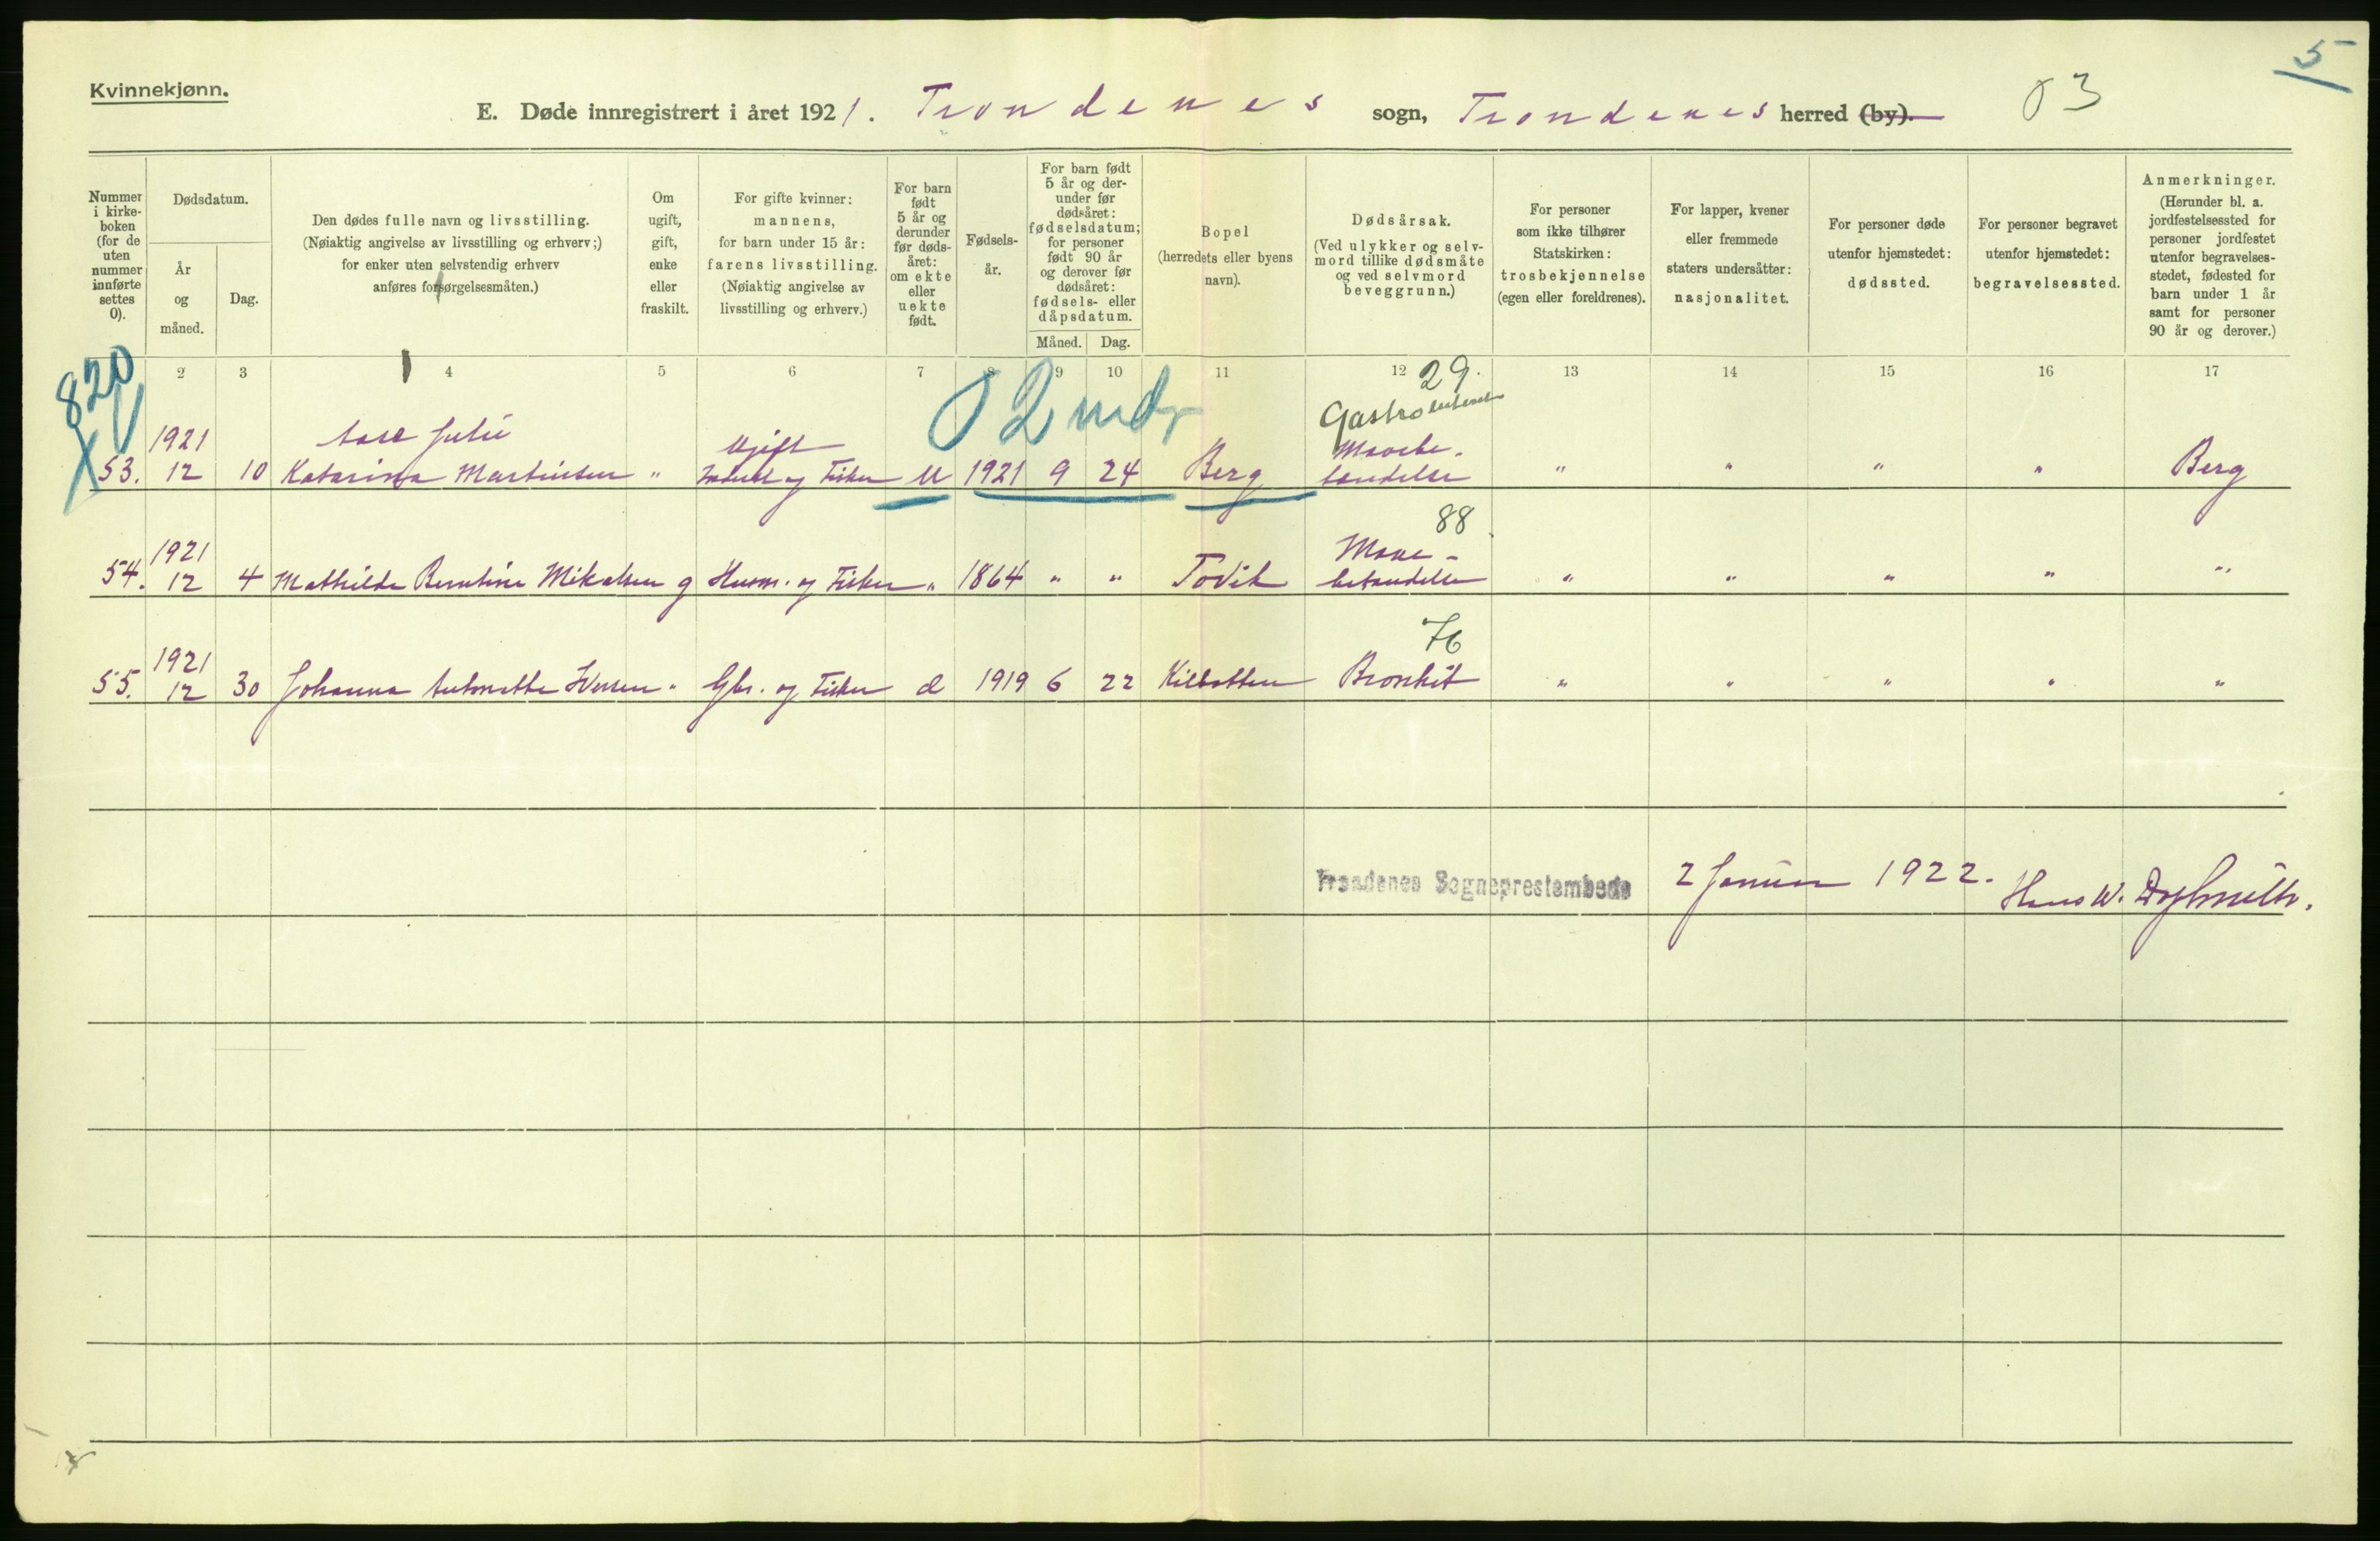 Kvinnekjønn.
5
E. Døde innregistrert i året 1921. Trondenes sogn, Trondenes herred (by). 03
Nummer i kirke-boken (for de uten nummer innførte settes 0).
Dødsdatum.
År og måned.
Dag.
Den dødes fulle navn og livsstilling. (Nøiaktig angivelse av livsstilling og erhverv;) for enker uten selvstendig erhverv anføres forsørgelsesmåten.)
Om ugift, gift, enke eller fraskilt.
For gifte kvinner: mannens, for barn under 15 år: farens livsstilling. (Nøiaktig angivelse av livsstilling og erhverv.)
For barn født 5 år og derunder før døds-året: om ekte eller uekte født.
Fødsels-år.
For barn født 5 år og der-under før dødsåret: fødselsdatum; for personer født 90 år og derover før dødsåret: fødsels- eller dåpsdatum.
Måned. Dag.
Bopel (herredets eller byens navn).
Dødsårsak. (Ved ulykker og selv-mord tillike dødsmåte og ved selvmord beveggrunn.)
For personer som ikke tilhører Statskirken: trosbekjennelse (egen eller foreldrenes).
For lapper, kvener eller fremmede staters undersåtter: nasjonalitet.
For personer døde utenfor hjemstedet: dødssted.
For personer begravet utenfor hjemstedet: begravelsessted.
Anmerkninger. (Herunder bl. a. jordfestelsessted for personer jordfestet utenfor begravelses-stedet, fødested for barn under 1 år samt for personer 90 år og derover.)
2 3 4 5 6 7 8 9 10 11 12 13 14 15 16 17
820
0 2 mdr
29.
Gastro
1921 Aase Julie Ugift
53. 12 10 Katarina Martinsen " og Fisker U 1921 9 24 Berg " " " " Berg
88
1921
54. 12 4 Mathilde Berntine Mikalsen g Husm. og Fisker " 1864 " " Tovik " " " " "
76
1921
55. 12 30 Johanna Antonette Iversen " Gbr. og Fisker 1919 6 22 Kilbotten Bronkit " " " " "
Trondenes Sogneprestembede 2 Januar 1922. Hans W.